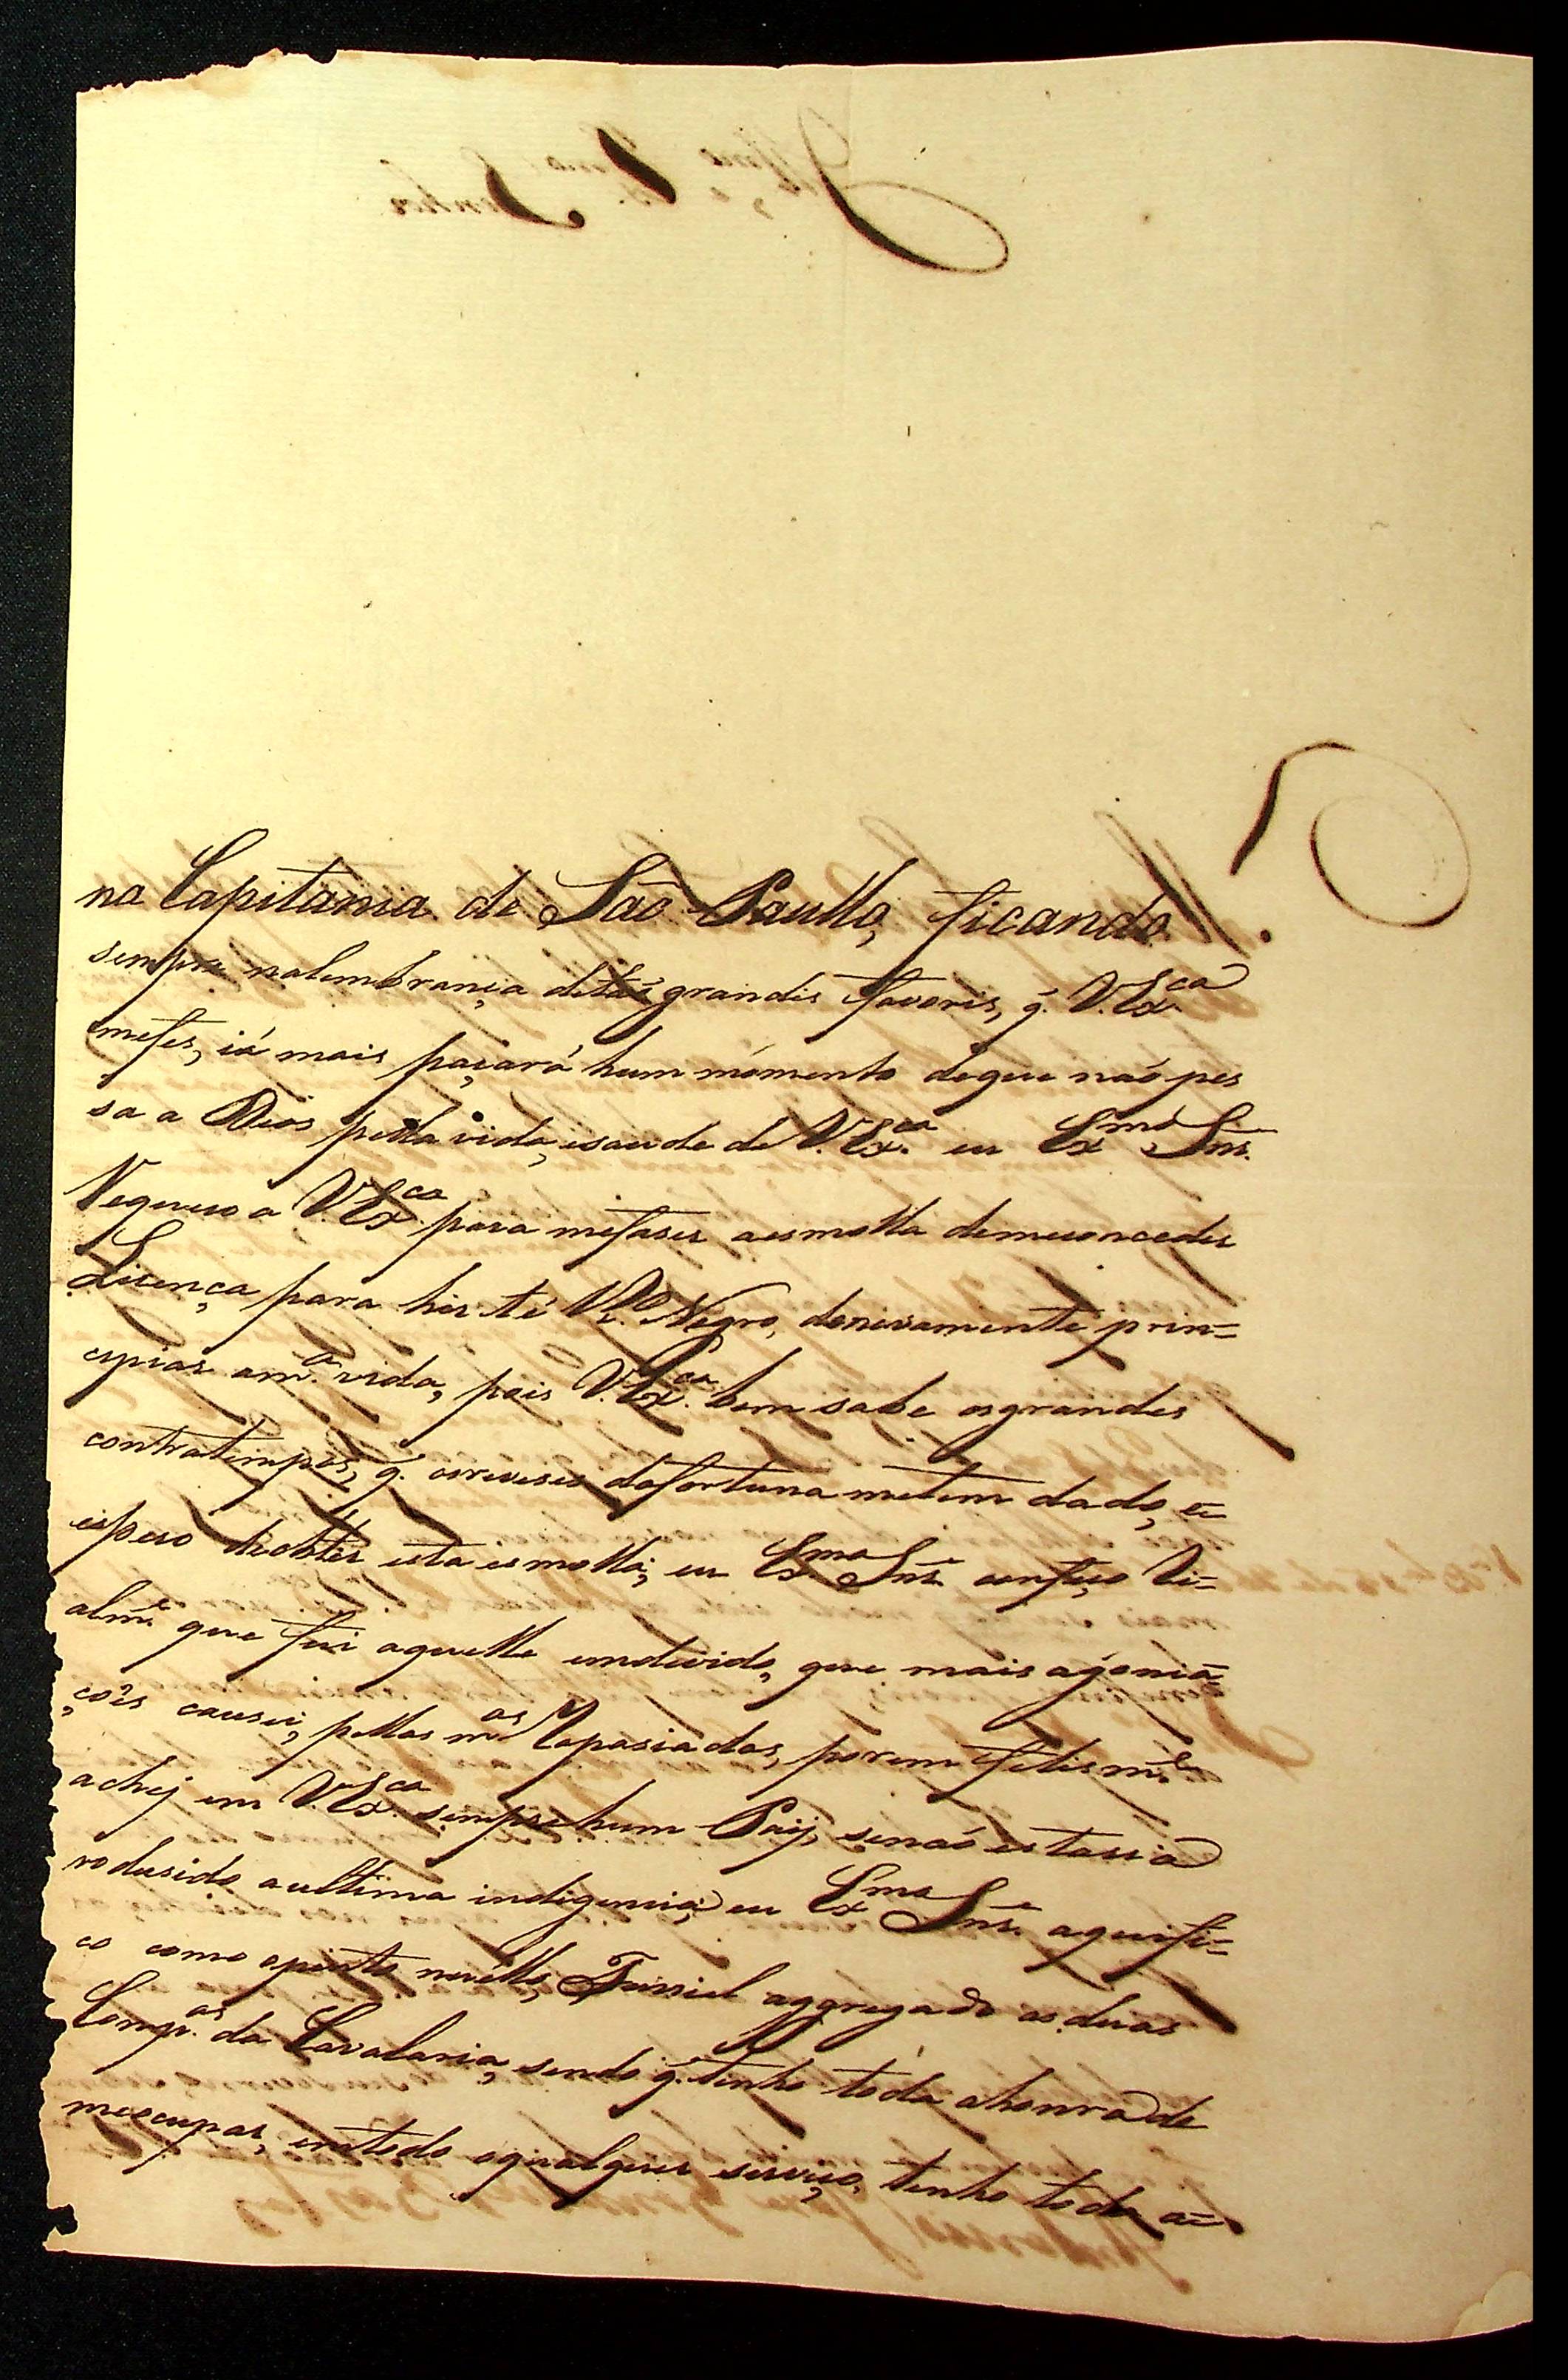 na Capitania de São Paullo, ficando
sempre nalembrança detão grandes favores, q. V. Exca
mefes, já mais paçará hum momento deque não pes
sa a Deos pella vida, esaude de V. Exca. eu Exmo Snr.
Requeiro a V. Exca para mefaser aesmolla demeconceder
Licença para hir té Rº. Negro, denovamente prin=
cipiar am.ª vida, pois V. Exca. bem sabe osgrandes
contratempos, q. osreveses dafortuna metem dado, e
espero deobter esta esmolla; eu Exmo Snr. confeço Li=
alm.e que fui aquelle endevido, que mais agonia=
çoẽs causei, pellas m.as rapasiadas, porem felism.e
achej em V. Exca. sempre hum Paij, senão estaria
redusido aultima indigencia; eu Exmo Snr. aquifi=
co como aponto nuvello, Furriel aggregado as duas
Comp.as da Cavalaria, sendo q. tenho toda ahonra de
meocupar, emtodo oqualquer serviço, tenho toda a=